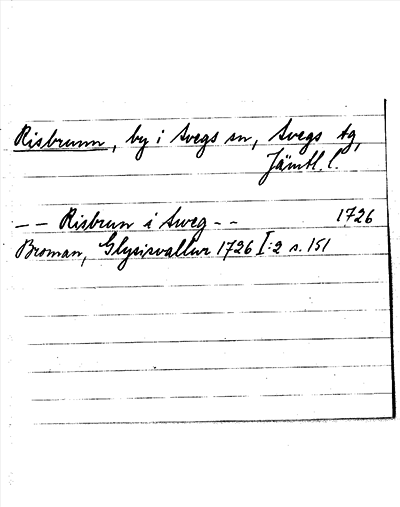 Risbrunn, by i Svegs sn, Svegs tg,
Jämtl. l.
-- Risbrun i Sweg -- 1726
Broman, Glysisvallur 1726 I:2 s. 151